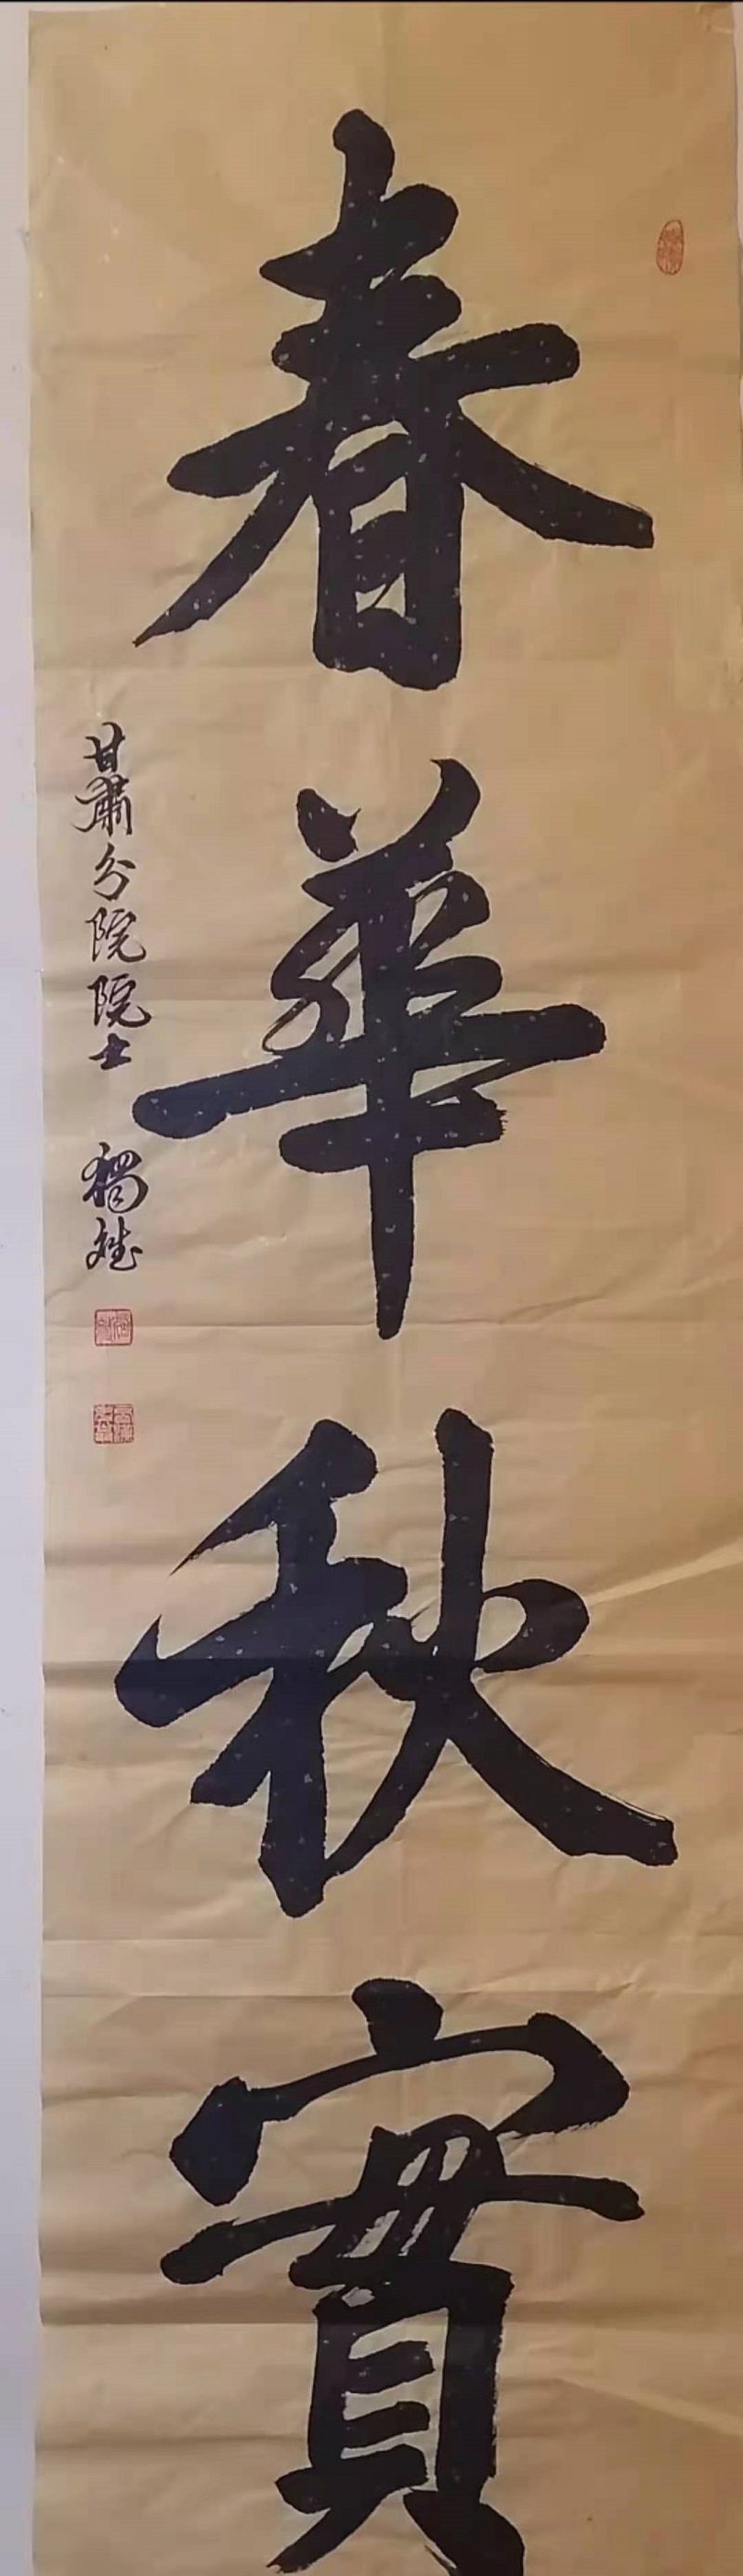 春華秋實
甘肅分院院士